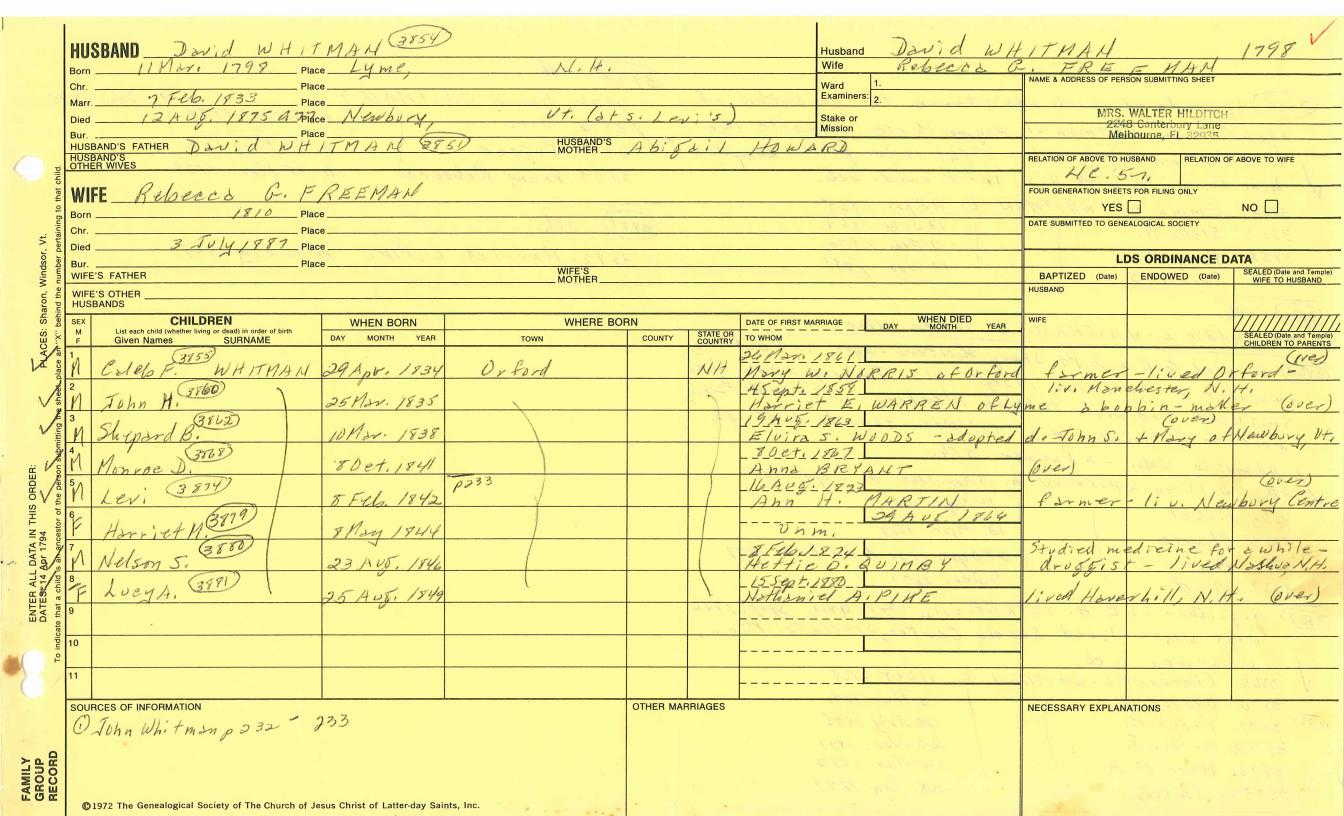 HUSBAND David WHITMAN 3854
Born 11 Mar. 1798 Place Lyme, N.H.
Chr. Place
Marr. 7 Feb. 1833 Place
Died 12 Aug. 1875 Place Newbury, Vt. (at s. Levi's)
Bur. Place
HUSBAND'S FATHER David WHITMAN 3851 HUSBAND'S MOTHER Abigail HOWARD
HUSBAND'S OTHER WIVES
WIFE Rebecca G. FREEMAN
Born 1810 Place
Chr. Place
Died 3 July 1887 Place
Bur. Place
WIFE'S FATHER WIFE'S MOTHER
WIFE'S OTHER HUSBANDS
Husband David WHITMAN 1798
Wife Rebecca G. FREEMAN
Ward Examiners: 1.
2.
Stake or Mission
NAME & ADDRESS OF PERSON SUBMITTING SHEET
MRS. WALTER HILDITCH
2248 Canterbury Lane
Melbourne, FL 32935
RELATION OF ABOVE TO HUSBAND RELATION OF ABOVE TO WIFE
FOUR GENERATION SHEETS FOR FILING ONLY
YES NO
DATE SUBMITTED TO GENEALOGICAL SOCIETY
LDS ORDINANCE DATA
BAPTIZED (Date) ENDOWED (Date) SEALED (Date and Temple) WIFE TO HUSBAND
HUSBAND
WIFE
SEALED (Date and Temple) CHILDREN TO PARENTS
SEX M F CHILDREN List each child (whether living or dead) in order of birth Given Names SURNAME WHEN BORN DAY MONTH YEAR WHERE BORN TOWN COUNTY STATE OR COUNTRY DATE OF FIRST MARRIAGE TO WHOM WHEN DIED DAY MONTH YEAR
1 M Caleb F. 3855 WHITMAN 29 Apr. 1834 Orford NH 26 Mar. 1861 Mary W. NORRIS of Orford farmer - lived Orford - (over)
2 M John H. 3860 25 Mar. 1835 4 Sept. 1858 Harriet E. WARREN of Lyme liv. Manchester, N.H. a bobbin-maker (over)
3 M Shepard B. 3862 10 Mar. 1838 19 Aug. 1863 Elvira S. WOODS - adopted d. John S. + Mary of Newbury, Vt. (over)
4 M Monroe D. 3868 8 Oct. 1841 8 Oct. 1867 Anna BRYANT (over)
5 M Levi 3874 8 Feb. 1842 p233 16 Aug. Ann H. MARTIN farmer - liv. Newbury Centre (over)
6 F Harriet M. 3879 8 May 1844 unm. 29 Aug. 1864
7 M Nelson S. 3880 23 Aug. 1846 8 Feb. 1874 Hettie D. QUIMBY Studied medicine for a while - druggist - lived Nashua, N.H.
8 F Lucy A. 3881 25 Aug. 1849 15 Sept. 1880 Nathaniel A. PIKE lived Haverhill, N.H. (over)
9
10
11
SOURCES OF INFORMATION
① John Whitman p 232 - 233
OTHER MARRIAGES
NECESSARY EXPLANATIONS
©1972 The Genealogical Society of The Church of Jesus Christ of Latter-day Saints, Inc.
FAMILY GROUP RECORD
ENTER ALL DATA IN THIS ORDER:
PLACES: Sharon, Windsor, Vt.
DATES: 14 Apr 1794
To indicate that a child is an ancestor of the person submitting the sheet, place an "X" behind the number pertaining to that child.